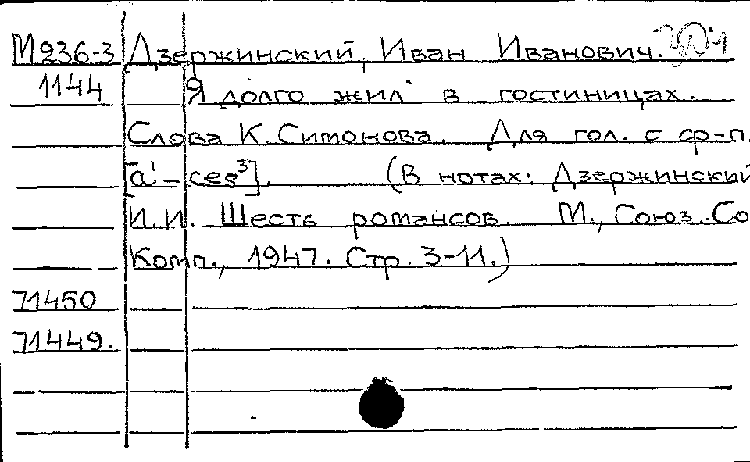 М236-3 Дзержинский, Иван Иванович.
1144 Я долго жил в гостиницах.
Слова К. Симонова. Для гол. с ср-п.
[a¹ – ces³]. (В нотах: Дзержинский
И.И. Шесть романсов. М., Союз. Со
Комп., 1947. Стр. 3-11.)
71450
71449.